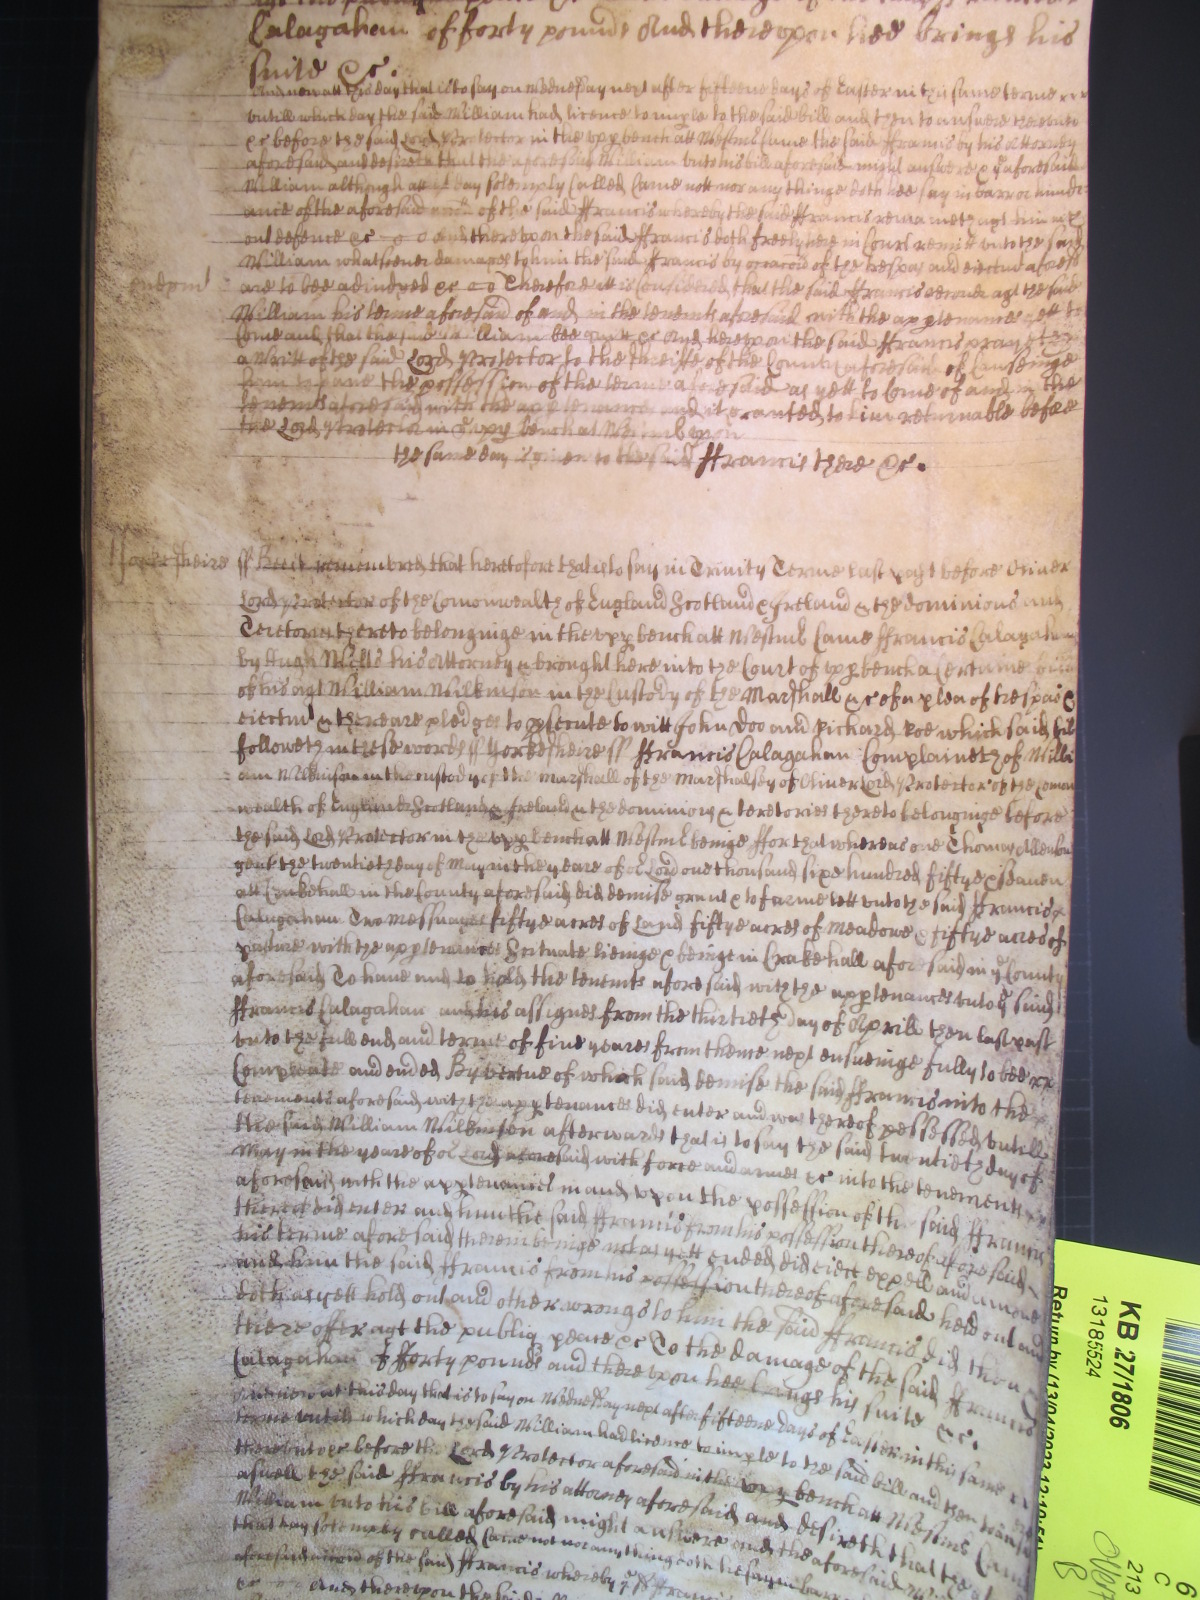 Calagahan of forty pounds And thereupon hee brings his
suite &c.
And now att this day that is to say on Wednesday next after fifteene days of Easter in this same terme
untill which day the said William had licence to imple to the said bill and then to answere thereunto
&c before the said Lord Protector in the upp bench att Westmr Came the said Francis by his Attorney
aforesaid and desireth that the aforesaid William unto his bill aforesaid might answere & ye aforesaid
William although att yt day solemply Called Came nott nor any thinge doth hee say in barr or hinder
ance of the aforesaid of the said Francis whereby the said Francis remaineth agt him
out defence &c And thereupon the said Francis doth freely here in Court remitt unto the said
William whatsoever damages to him the said Francis by occacon of the trespas and eiectmt aforesd
are to bee adiudged &c Therefore itt is Considered that the said Francis recover agt the said
William his terme aforesaid of and in the tenemts aforesaid with the apptenances yett to
Come and that the said William bee &c And hereupon the said Francis prayeth
a Writt of the said Lord Protector to the Sheriffe of the County aforesaid of
him to have the possession of the terme aforesaid as yett to Come of and in the
tenemts aforesaid with the apptenances and it is granted to him returnable before
the Lord Protector in ye upp bench at Westm upon
the same day is given to the said Francis there &c.
Yorkesheire ss Bee it remembred that heretofore that is to say in Trinity Terme last past before Oliver
Lord Protector of the Comonwealth of England Scotland & Ireland & the dominions and
Teretories thereto belonginge in the upp bench att Westmr Came Francis Calagahan
by Hugh Wells his Attorney & brought here into the Court of upp bench a certaine bill
of his agt William Wilkinson in the Custody of the Marshall &c of a plea of trespas &
eiectmt & there are pledges to psecute to witt John Doo and Richard Roe which said bill
followeth in these words ss Yorkesheire ss Francis Calagahan Complaineth of Willi
am Wilkinson in the custody of the Marshall of the Marshalsey of Oliver Lord Protector of the Comon
wealth of England Scotland & Ireland & the dominions & teretories thereto belonginge before
the said Lord Protector in the upp bench att Westmr beinge For that whereas one Thomas
gent the twentieth day of May in the yeare of or Lord one thousand sixe hundred fiftye & seaven
att Crakehall in the County aforesaid did demise grant & to farme lett unto the said Francis
Calagahan Two Messuages fiftye acres of Land fiftye acres of Meadowe & fiftye acres of
pasture with the apptenances Scituate lieinge & beinge in Crakehall aforesaid in ye County
aforesaid To have and to hold the tenemts aforesaid with the apptenances unto ye said
Francis Calagahan and his assignes from the thirtieth day of Aprill then last past
unto the full end and terme of five yeares from thence next ensueinge fully to bee
Compleate and ended By vertue of which said demise the said Francis into the
tenements aforesaid with the apptenances did enter and was thereof possessed untill
the said William Wilkinson afterwards that is to say the said twentieth day of
May in the yeare of or Lord aforesaid with force and armes &c into the tenements
aforesaid with the apptenances in and upon the possession of the said Francis
thereof did enter and him the said Francis from his possession thereof aforesaid
his terme aforesaid therein beinge not as yett ended did eiect expell and amove
and him the said Francis from his possession thereof aforesaid held out and
doth as yett hold out and other wrongs to him the said Francis did then &
there offer agt the publiq peace &c To the damage of the said Francis
Calagahan of Forty pounds and thereupon hee brings his suite &c.
And now at this day that is to say on Wednesday next after fifteene days of Easter in this same
terme untill which day the said William had licence to imple to the said bill and then to answere
thereunto &c before the Lord Protector aforesaid in the upp bench att Westmr Came
aswell the said Francis by his attorney aforesaid and desireth that the
William unto his bill aforesaid might answere and the aforesaid
that day solemply called Came not nor any thing doth he say in barr
aforesaid of the said Francis whereby ye sd Francis
And thereupon the said
KB 27/1806
13185524
213
6
C